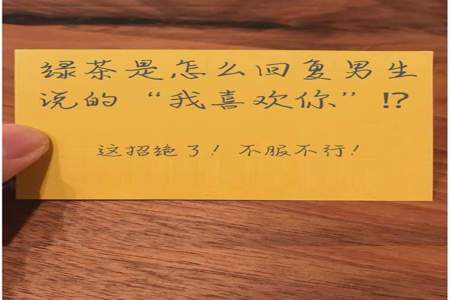 绿茶是怎么回复男生
说的“我喜欢你”!?
这招绝了！不服不行！